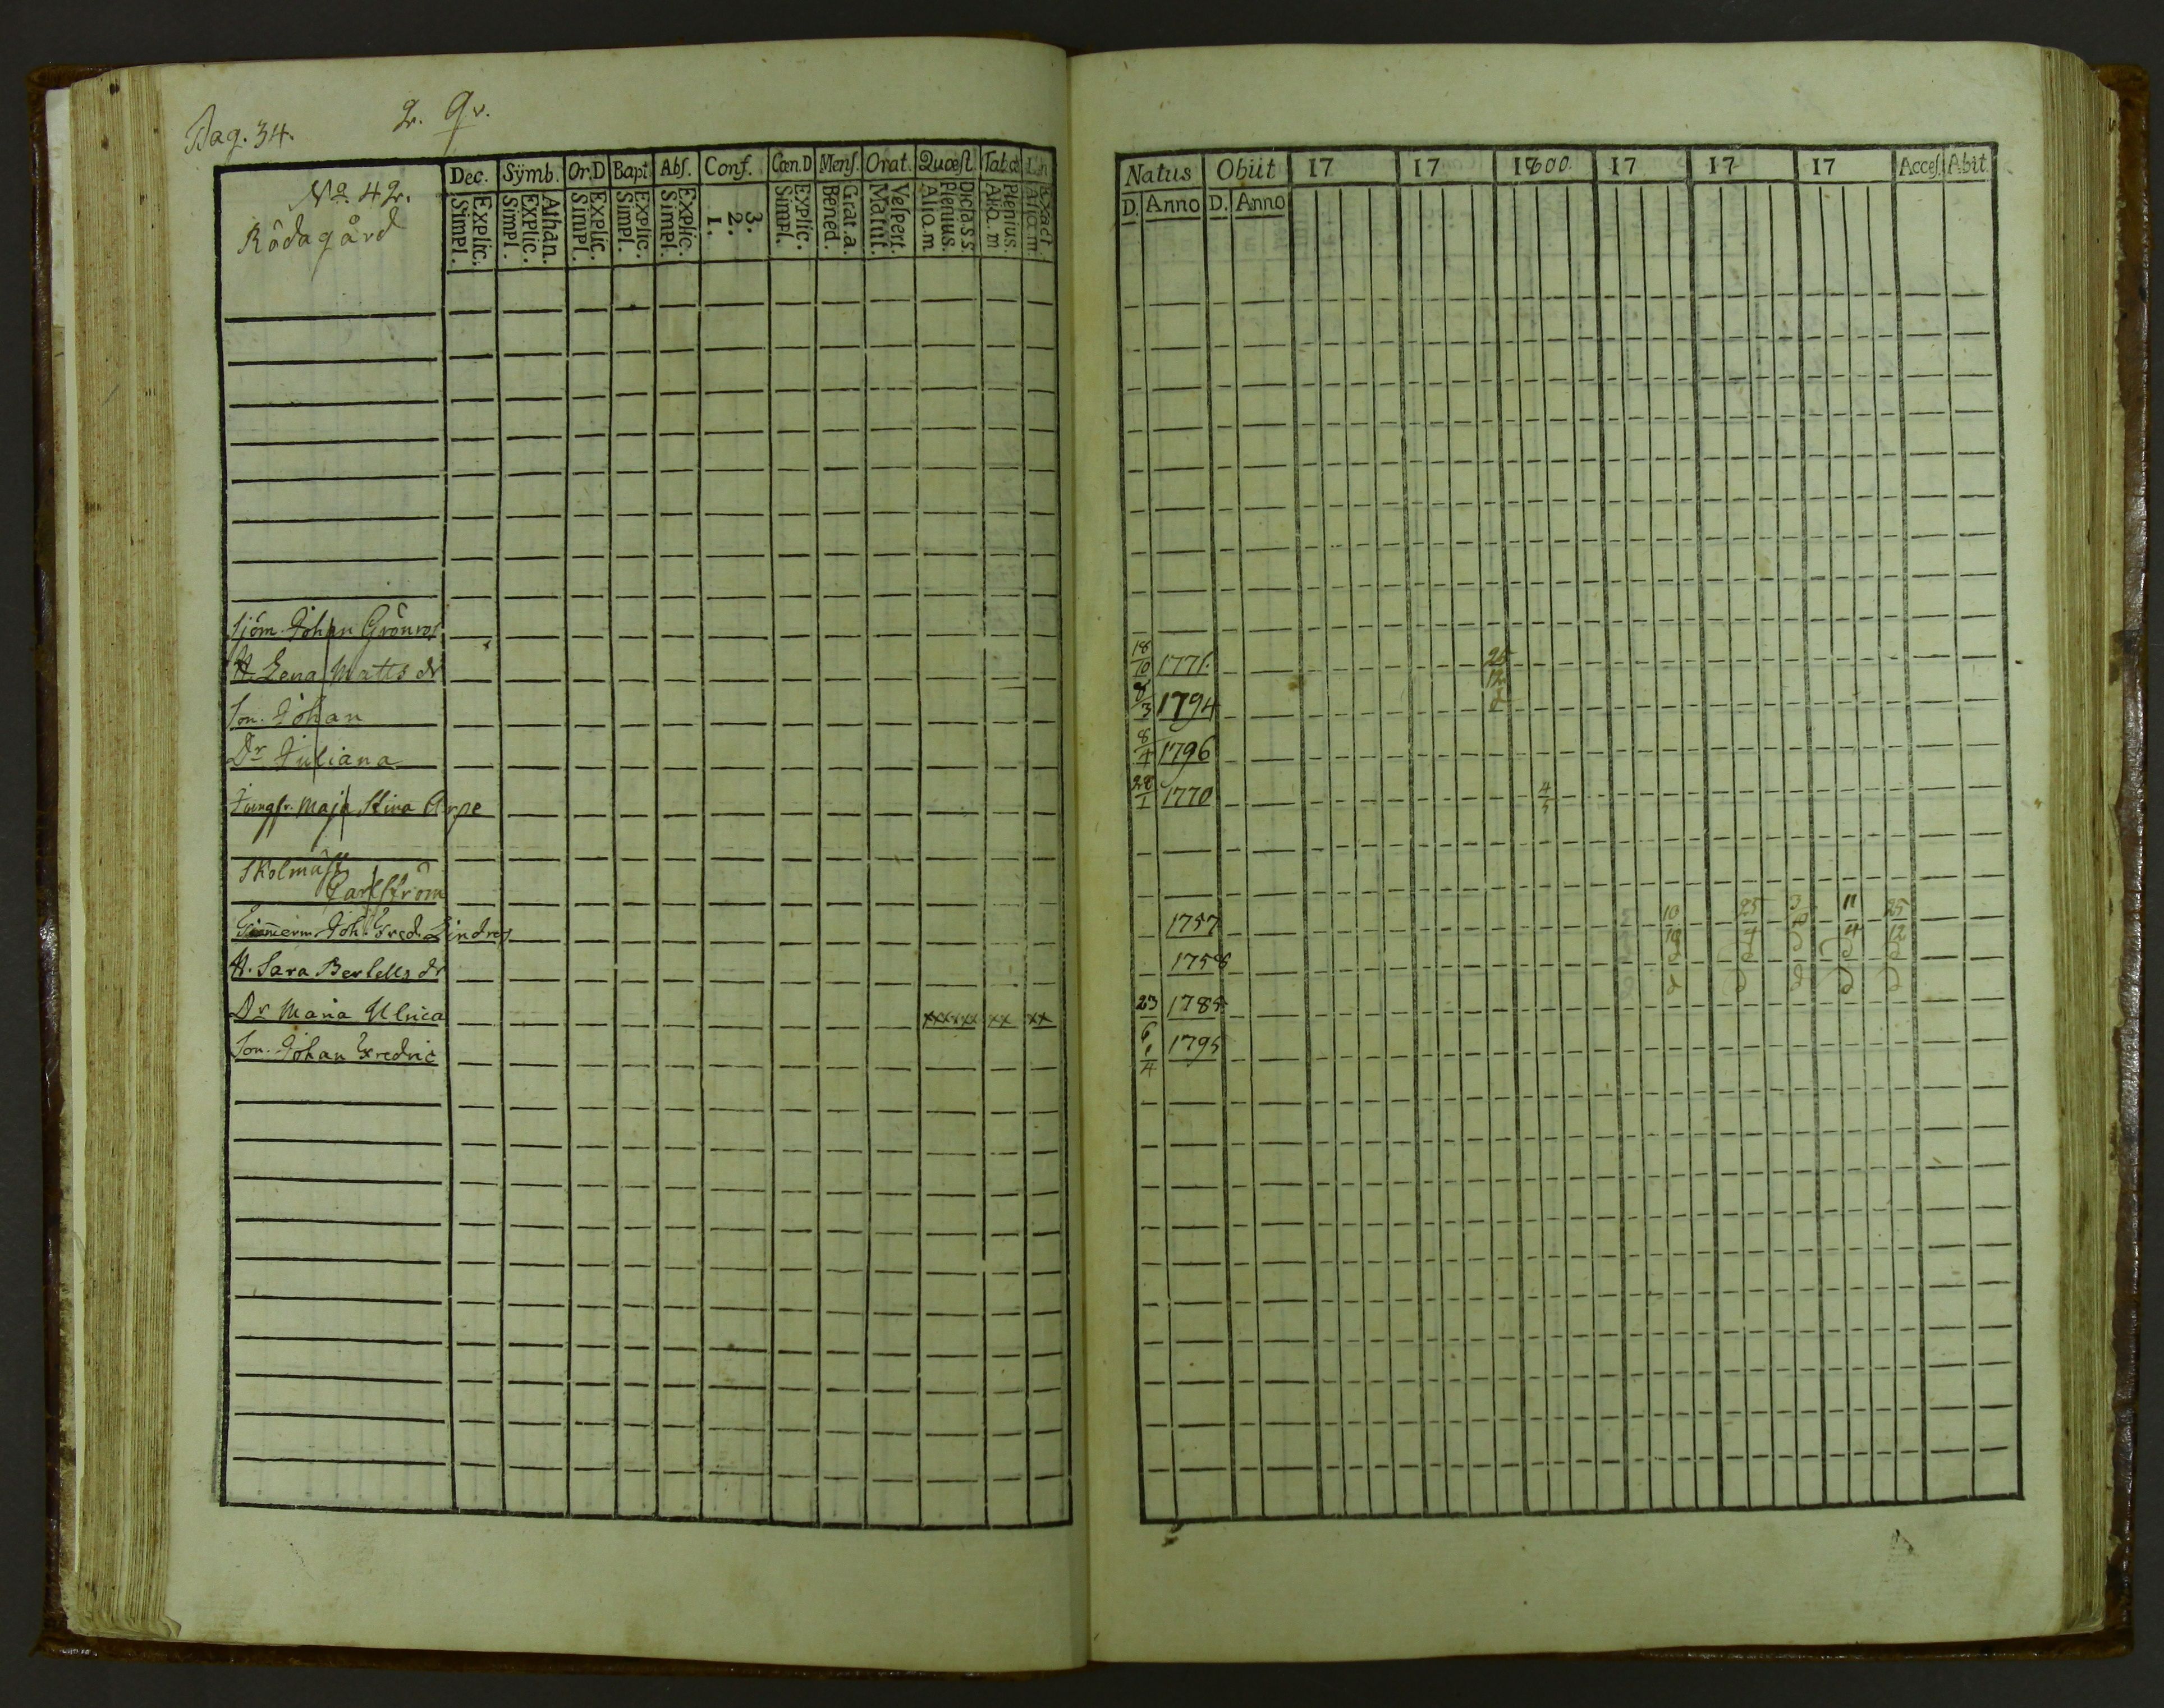 Pag. 34.
2. Qv.
No. 42.
Rådagård
Dec. Sÿmb. Or.D Bapt. Abſ. Conf. Cœn.D Menſ. Orat. Quæſt. Tab.œ
Explic. Simpl.
Athan. Explic. Simpl.
Explic. Simpl.
Explic. Simpl.
Explic. Simpl.
3. 2. 1.
Explic. Simpl.
Grat. a. Bened.
Veſpert. Matut.
Dicta.s.s. Plenius. Aliq.m
Plenius. Aliq.m
Exact Aliq.m.
Sjöm. Johan Grönros
H. Lena Matts dr
Son. Johan
Dr Juliana
Jungfr. Maja Stina Arpe
Skolmäst.
Carlström
Timmerm. Joh. Fred. Lindros
H. Sara Bertells dr
Dr Maria Ulrica xxxxxx xx xx
Son. Johan Fredric
Natus Obiit 17 17 1800 17 17 17 Acceſ. Abit.
D. Anno D. Anno
18/10 1771. 25/12
8/3 1794
8/4 1796
28/1 1770 4/5
1757 10/10 25/4 3/10 11/4 25/12
1758
23/6 1785
1/4 1795